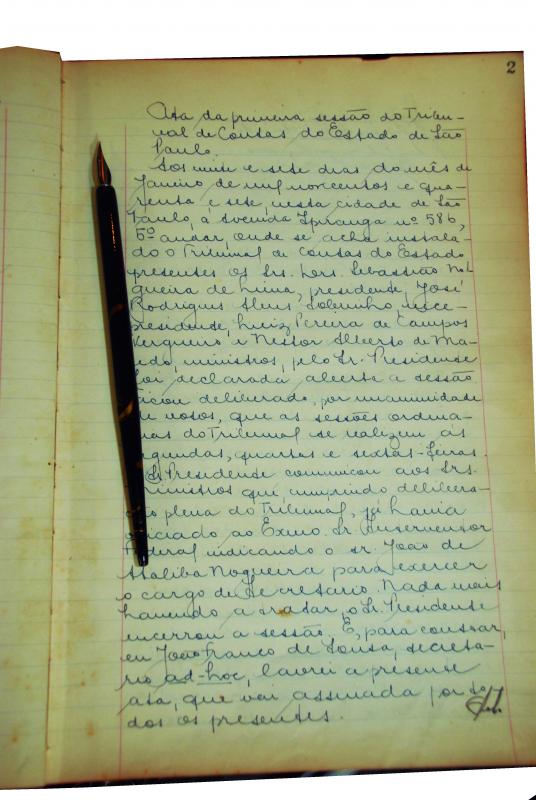 2
Ata da primeira sessão do Tribu-
nal de Contas do Estado de São
Paulo.
Aos vinte e sete dias do mês de
Janeiro de mil novecentos e qua-
renta e sete, nesta cidade de São
Paulo, á Avenida Ipiranga nº 586,
5º andar, onde se acha instala-
do o Tribunal de Contas do Estado
presentes os Srs. Drs. Sebastião No-
gueira de Lima, presidente, José
Rodrigues Alves Sobrinho, vice-
presidente, Luiz Pereira de Campos
Vergueiro e Nestor Alberto de Ma-
cedo, ministros, pelo Sr. Presidente
foi declarada aberta a sessão
ficou deliberado, por unanimidade
de votos, que as sessões ordina-
rias do Tribunal se realizem ás
segundas, quartas e sextas-feiras.
O Sr. Presidente communicou aos Srs.
Ministros que, cumprindo delibera-
ção plena do Tribunal, já havia
oficiado ao Exmo. Sr. Interventor
Federal indicando o sr. João de
Ataliba Nogueira para exercer
o cargo de Secretario. Nada mais
havendo a tratar, o Sr. Presidente
encerrou a sessão. E, para constar,
eu João Franco de Sousa, secreta-
rio ad-hoc, lavrei a presente
ata, que vai assinada por to-
dos os presentes.